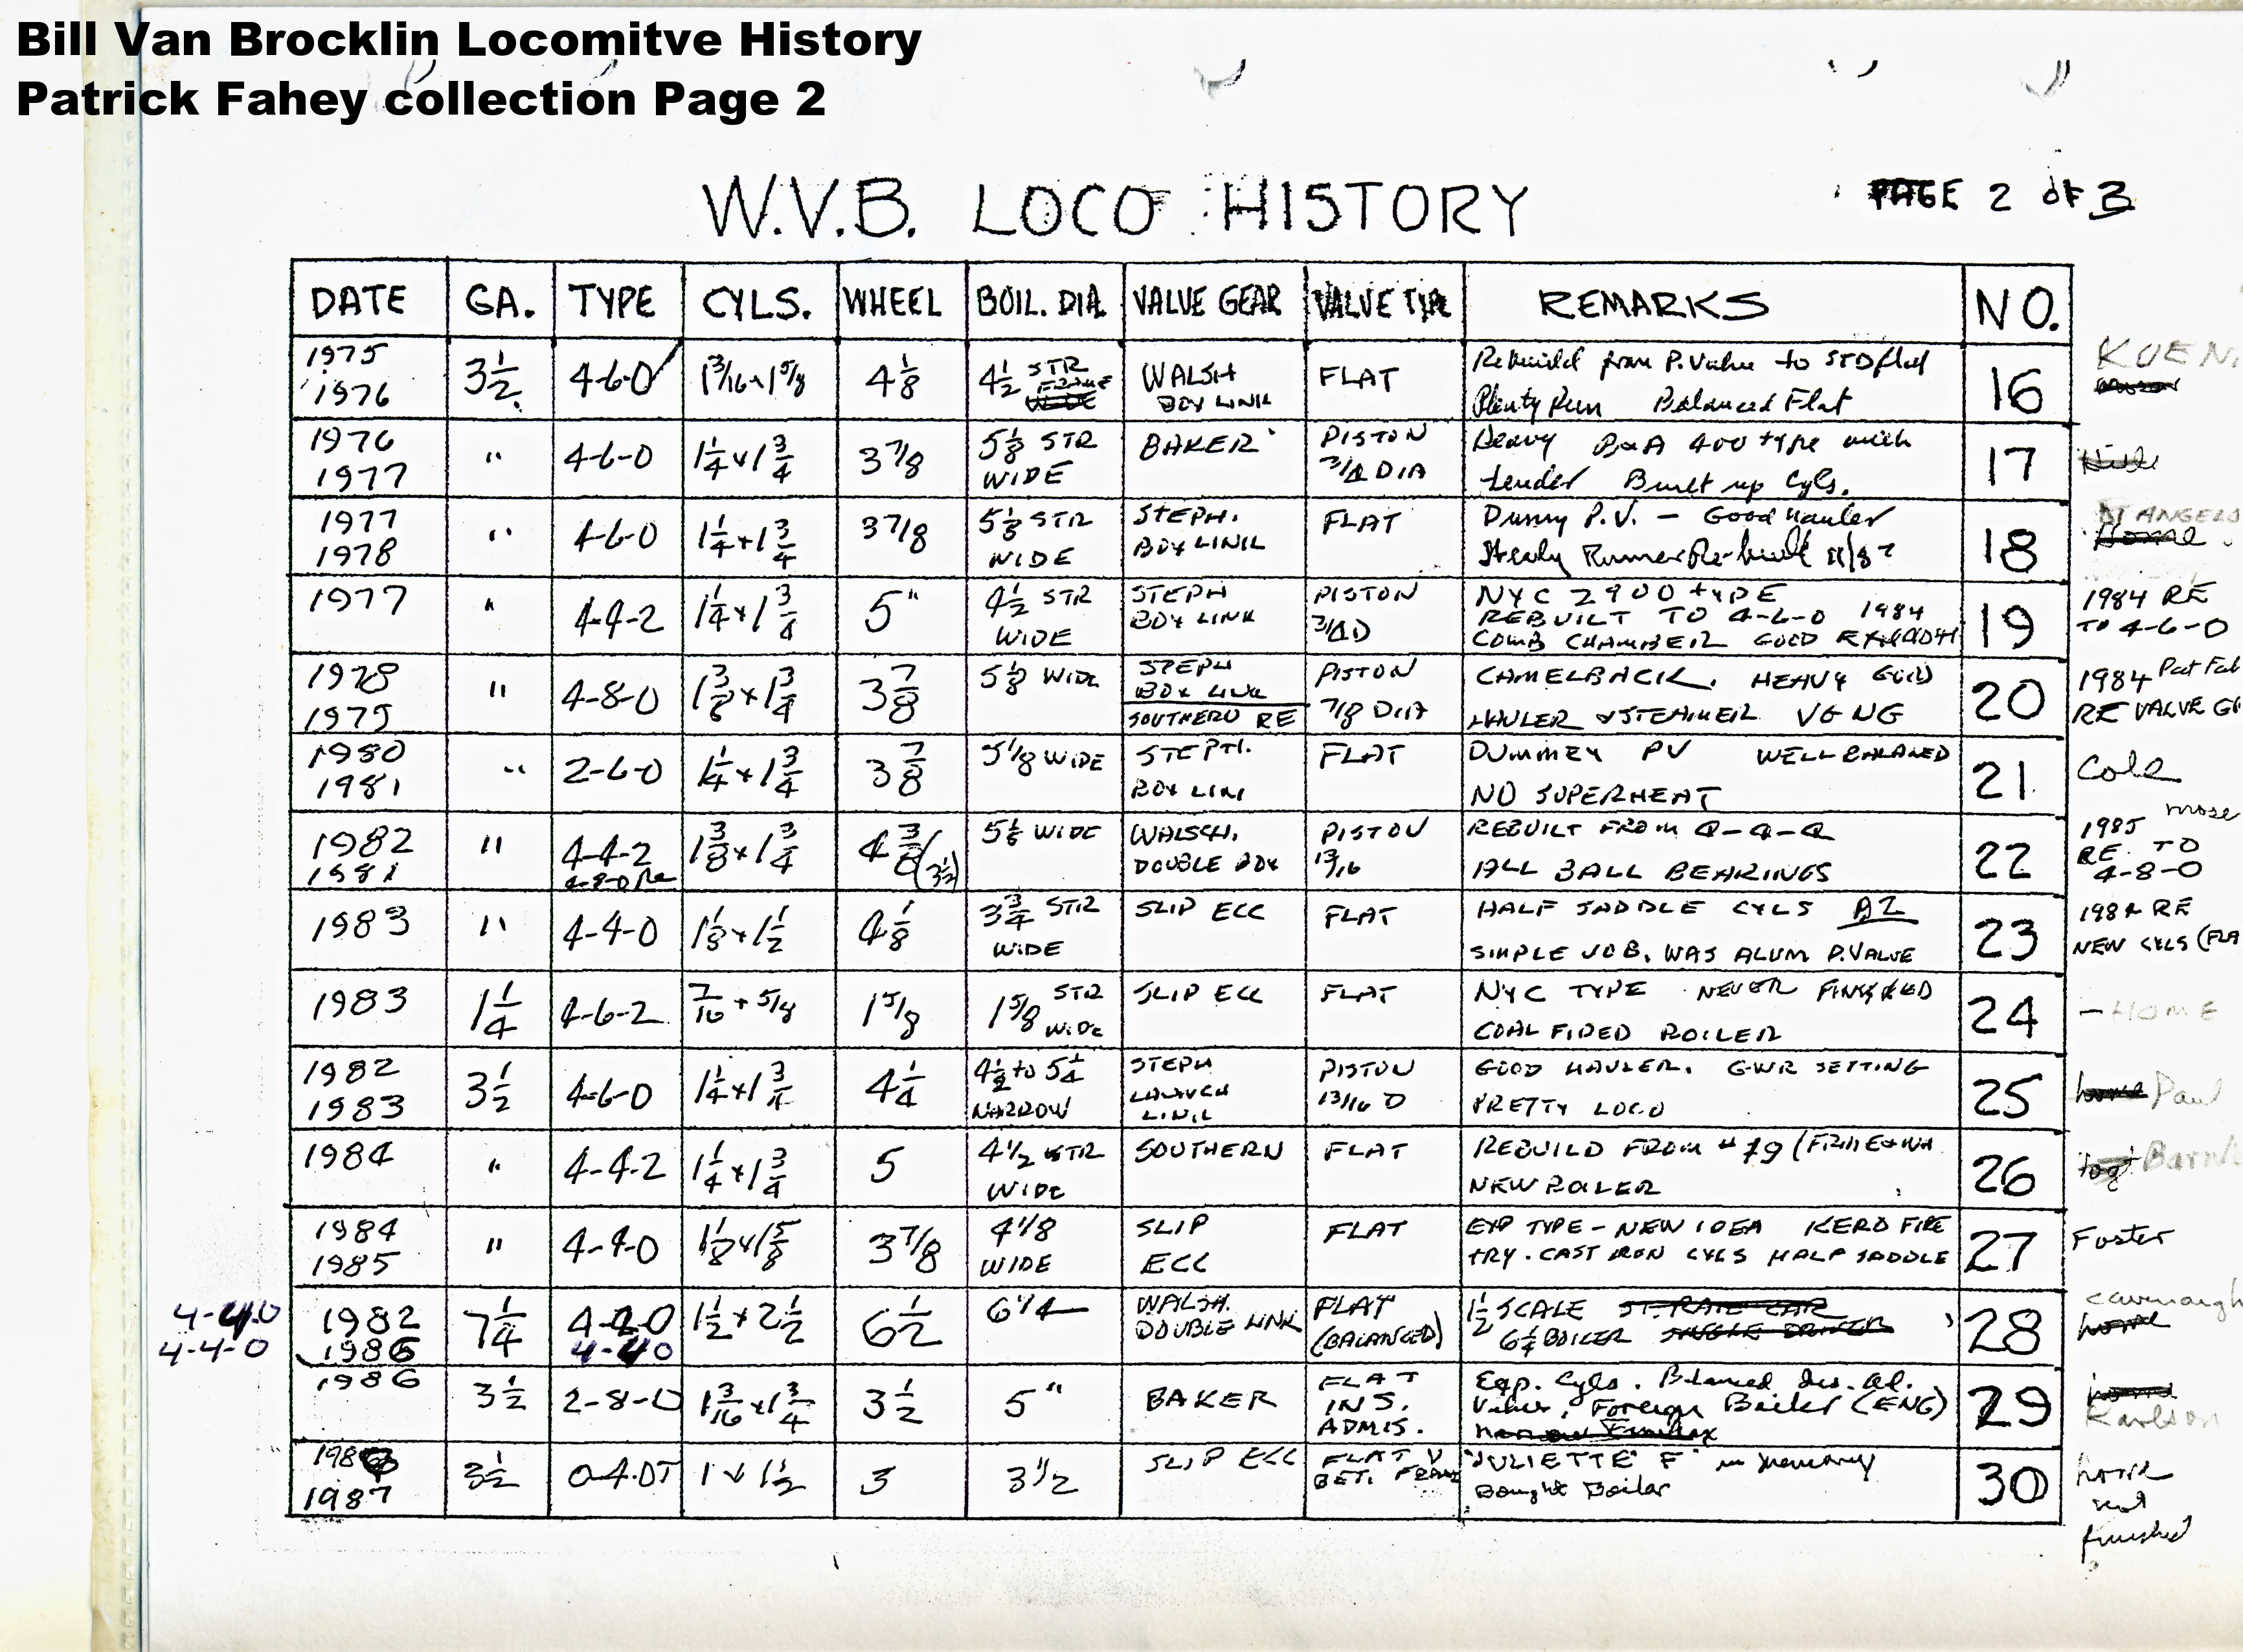 Bill Van Brocklin Locomitve History
Patrick Fahey collection Page 2
W.V.B. LOCO HISTORY
PAGE 2 OF 3
DATE GA. TYPE CYLS. WHEEL BOIL. DIA. VALVE GEAR VALVE TYPE REMARKS NO.
1975 1976 3 1/2 4-6-0 1 3/16 x 1 5/8 4 1/8 4 1/2 STR WALSH BOX LINK FLAT Rebuild from P. Valve to STD flat 16 KUEN
Plenty Run Balanced Flat
1976 1977 " 4-6-0 1 1/4 x 1 3/4 3 7/8 5 1/8 STR WIDE BAKER PISTON 3/4 DIA Heavy B&A 400 type with 17
tender Built up Cyls.
1977 1978 " 4-6-0 1 1/4 x 1 3/4 3 7/8 5 1/8 STR WIDE STEPH. BOX LINK FLAT Dummy P.V. - Good hauler 18 DI ANGELO
Steady Runner Re-built 11/87 Home
1977 " 4-4-2 1 1/4 x 1 3/4 5" 4 1/2 STR WIDE STEPH BOX LINK PISTON 3/4 D NYC 2900 TYPE 19 1984 RE
REBUILT TO 4-6-0 1984 TO 4-6-0
COMB CHAMBER GOOD
1978 1979 " 4-8-0 1 3/8 x 1 3/4 3 7/8 5 1/8 WIDE STEPH BOX LINK PISTON 7/8 DIA CAMELBACK. HEAVY GOOD 20 1984 Pat Fah
SOUTHERN RE HAULER & STEAMER VG NG RE VALVE GE
1980 1981 " 2-6-0 1 1/4 x 1 3/4 3 7/8 5 1/8 WIDE STEPH. BOX LINK FLAT DUMMEY PV WELL BALANED 21 Cole
NO SUPERHEAT
1982 1981 " 4-4-2 4-8-0 Re 1 3/8 x 1 3/4 4 3/8 (3 1/2) 5 1/8 WIDE WALSCH. DOUBLE BOX PISTON 13/16 REBUILT FROM 22 1985 RE. TO 4-8-0
ALL BALL BEARINGS
1983 " 4-4-0 1 1/8 x 1 1/2 4 1/8 3 3/4 STR WIDE SLIP ECC FLAT HALF SADDLE CYLS 23 1984 RE
SIMPLE JOB. WAS ALUM P. VALVE NEW CYLS (FLA
1983 1 1/4 4-6-2 7/16 x 5/8 1 5/8 1 5/8 STR WIDE SLIP ECC FLAT NYC TYPE NEVER FINISHED 24 - HOME
COAL FIRED BOILER
1982 1983 3 1/2 4-6-0 1 1/4 x 1 3/4 4 1/4 4 1/2 to 5 1/4 NARROW STEPH LAUNCH LINK PISTON 13/16 D GOOD HAULER. GWR SETTING 25 home Paul
PRETTY LOCO
1984 " 4-4-2 1 1/4 x 1 3/4 5 4 1/2 STR WIDE SOUTHERN FLAT REBUILD FROM #19 26
NEW BOILER
1984 1985 " 4-4-0 1 1/8 x 1 5/8 3 7/8 4 1/8 WIDE SLIP ECC FLAT EXP TYPE - NEW IDEA KERO FIRE 27 Foster
TRY. CAST IRON CYLS HALF SADDLE
4-4-0 4-4-0 1982 1986 7 1/4 4-2-0 4-4-0 1 1/2 x 2 1/2 6 1/2 6 1/4 WALSH. DOUBLE LINK FLAT (BALANCED) 1 1/2 SCALE 28 cavenaugh
6 1/4 BOILER SINGLE DRIVER home
1986 3 1/2 2-8-0 1 3/16 x 1 3/4 3 1/2 5" BAKER FLAT INS. ADMIS. Exp. Cyls. Balanced 29 home Karlson
Valves, Foreign Boiler (ENG)
1986 1987 3 1/2 0-4-0T 1 x 1 1/2 3 3 1/2 SLIP ECC FLAT V BET. FRAME "JULIETTE F" in memory 30 home
Bought Boiler not
finished